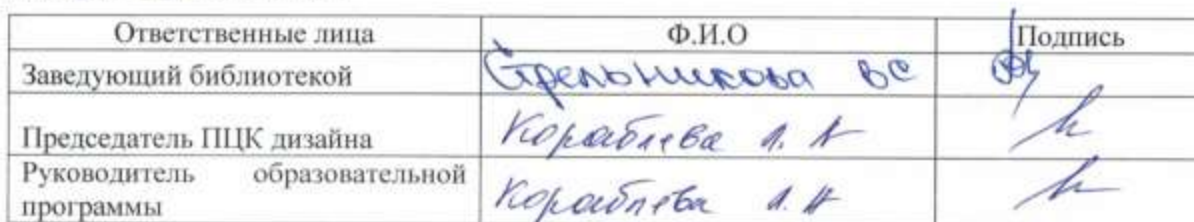 Ответственные лица Ф.И.О Подпись
Заведующий библиотекой Стрельникова ВС
Председатель ПЦК дизайна Кораблева А. А
Руководитель образовательной
программы Кораблева А. А